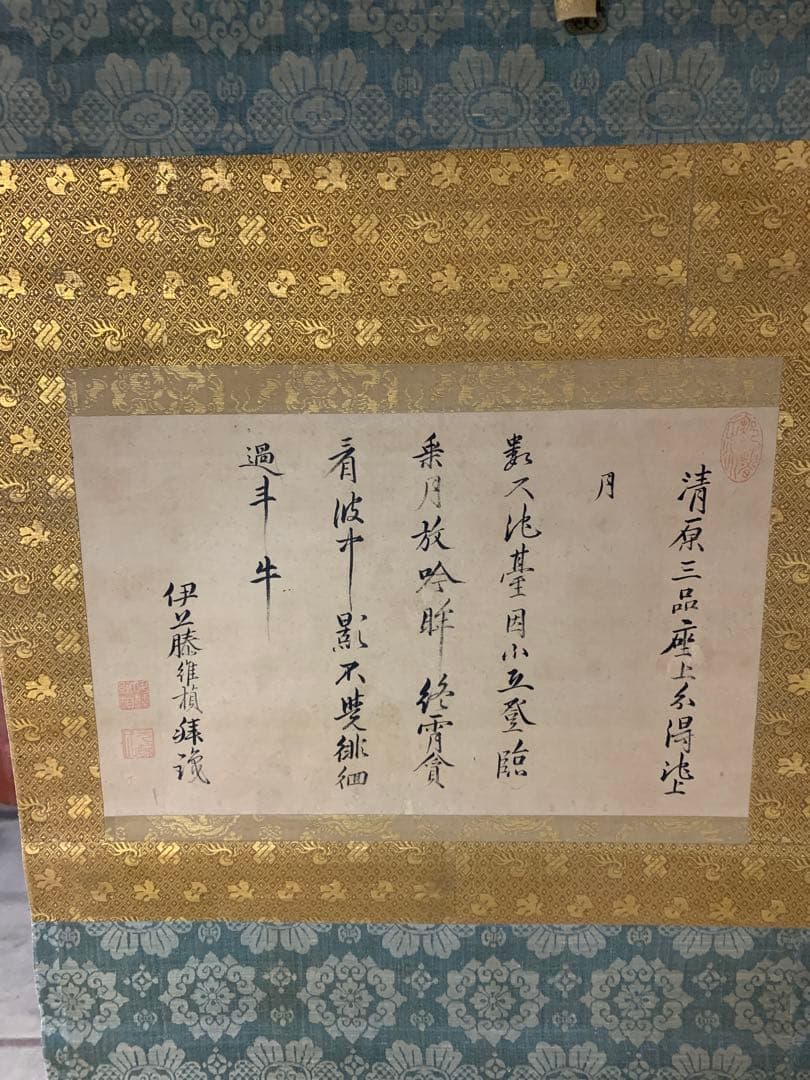 清原三品座上分得池上
月
数尺池臺因小立登臨
乗月放吟眸終霄貪
看波中影不覺徘徊
過斗牛
伊藤維楨拜